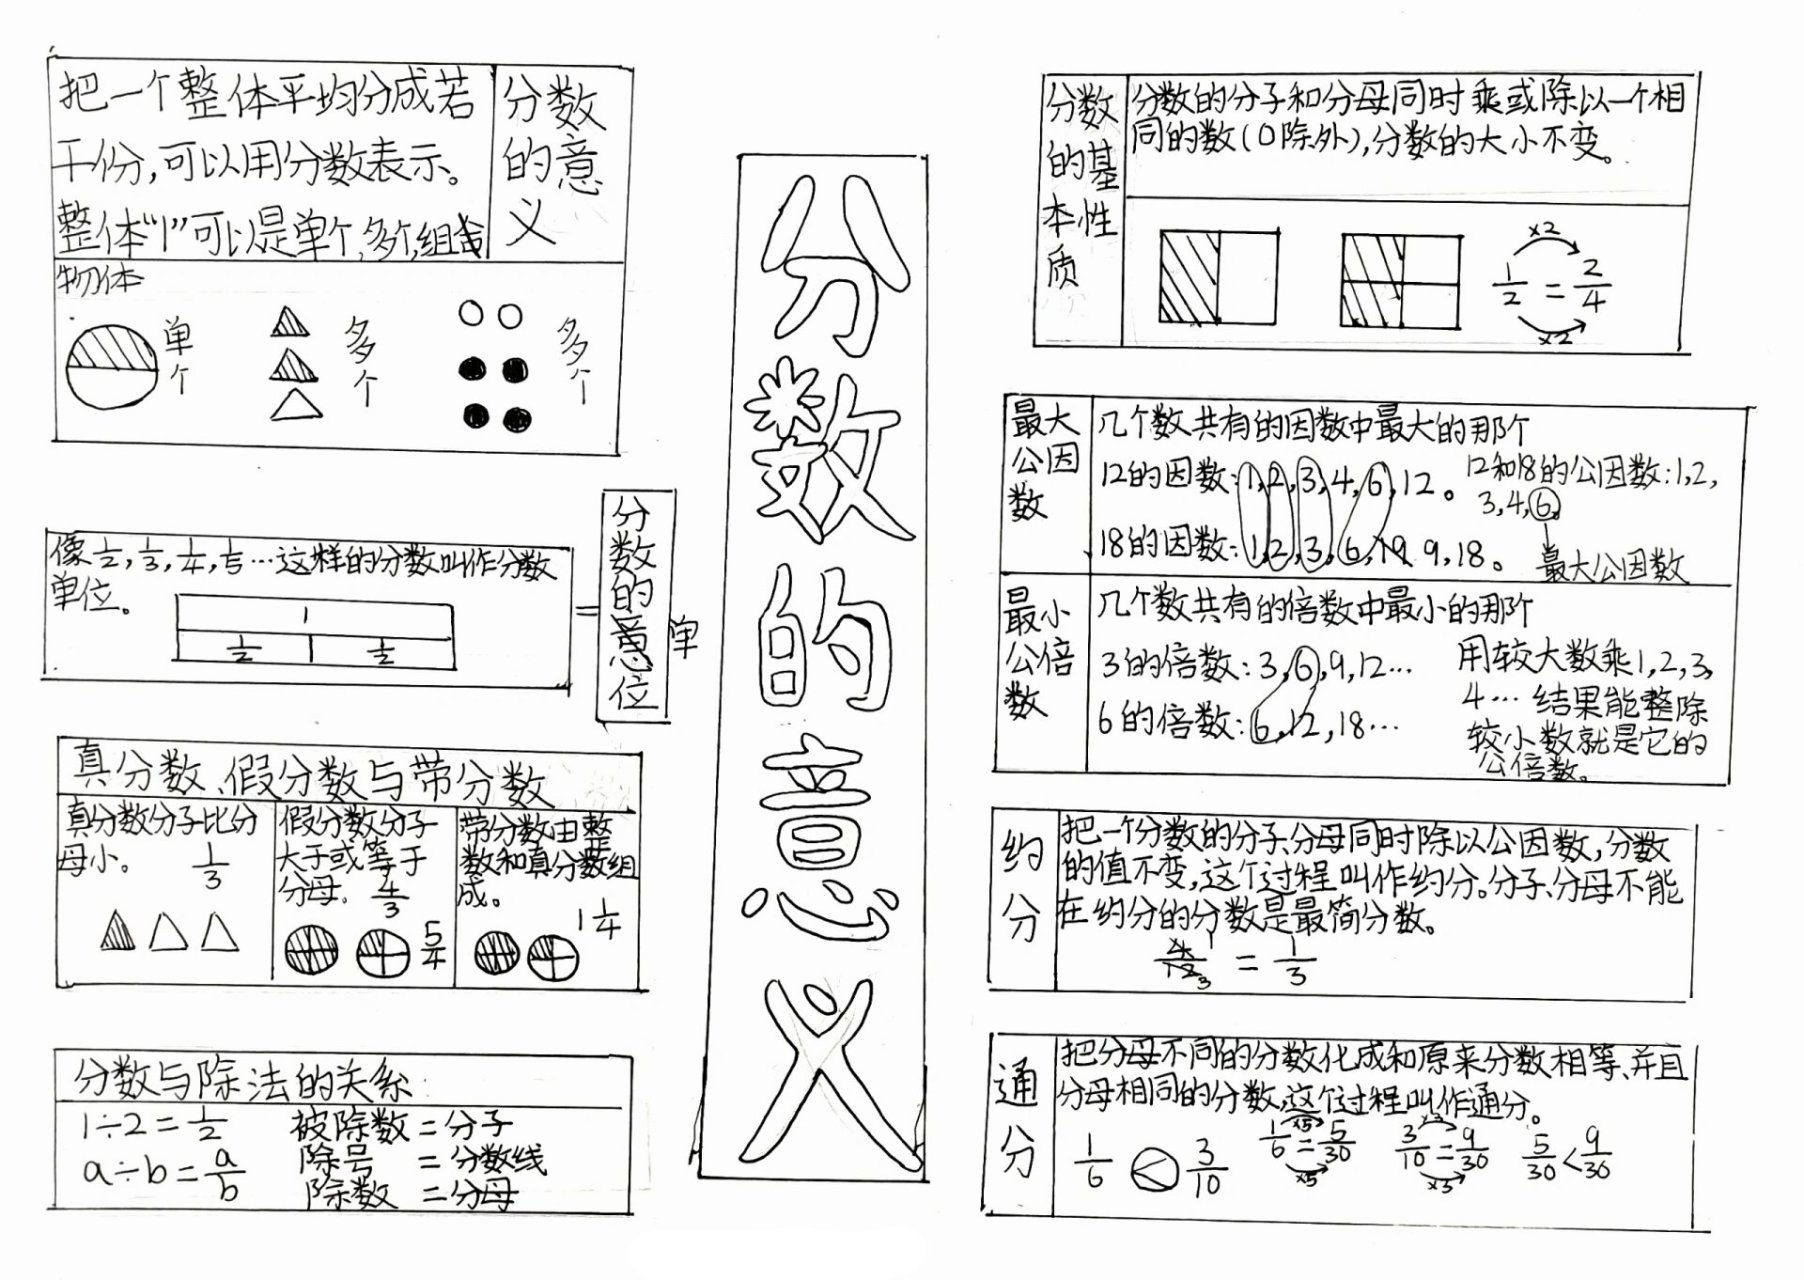 把一个整体平均分成若
干份,可以用分数表示。
整体“1”可以是单个,多个,组合
物体
分数
的意
义
单个
多个
多个
像1/2,1/3,1/4,1/5…这样的分数叫作分数
单位。
1
1/2 1/2
=
分数的意位
单
真分数、假分数与带分数
真分数分子比分
母小。 1/3
假分数分子
大于或等于
分母. 4/3
5/4
带分数由整
数和真分数组
成。
1 1/4
分数与除法的关系
1÷2=1/2 被除数=分子
a÷b=a/b 除号 =分数线
除数 =分母
分数的意义
分数
的基
本性
质
分数的分子和分母同时乘或除以一个相
同的数(0除外),分数的大小不变。
×2
1/2 = 2/4
×2
最大
公因
数
几个数共有的因数中最大的那个
12的因数:1,2,3,4,6,12。
12和18的公因数:1,2,
3,4,6。
18的因数:1,2,3,6,9,18。
最大公因数
最小
公倍
数
几个数共有的倍数中最小的那个
3的倍数:3,6,9,12…
6的倍数:6,12,18…
用较大数乘1,2,3,
4…结果能整除
较小数就是它的
公倍数。
约
分
把一个分数的分子、分母同时除以公因数,分数
的值不变,这个过程叫作约分。分子、分母不能
在约分的分数是最简分数。
4/12 1 3 = 1/3
通
分
把分母不同的分数化成和原来分数相等、并且
分母相同的分数,这个过程叫作通分。
1/6 < 3/10
×5
1/6=5/30
×5
×3
3/10=9/30
×3
5/30<9/30